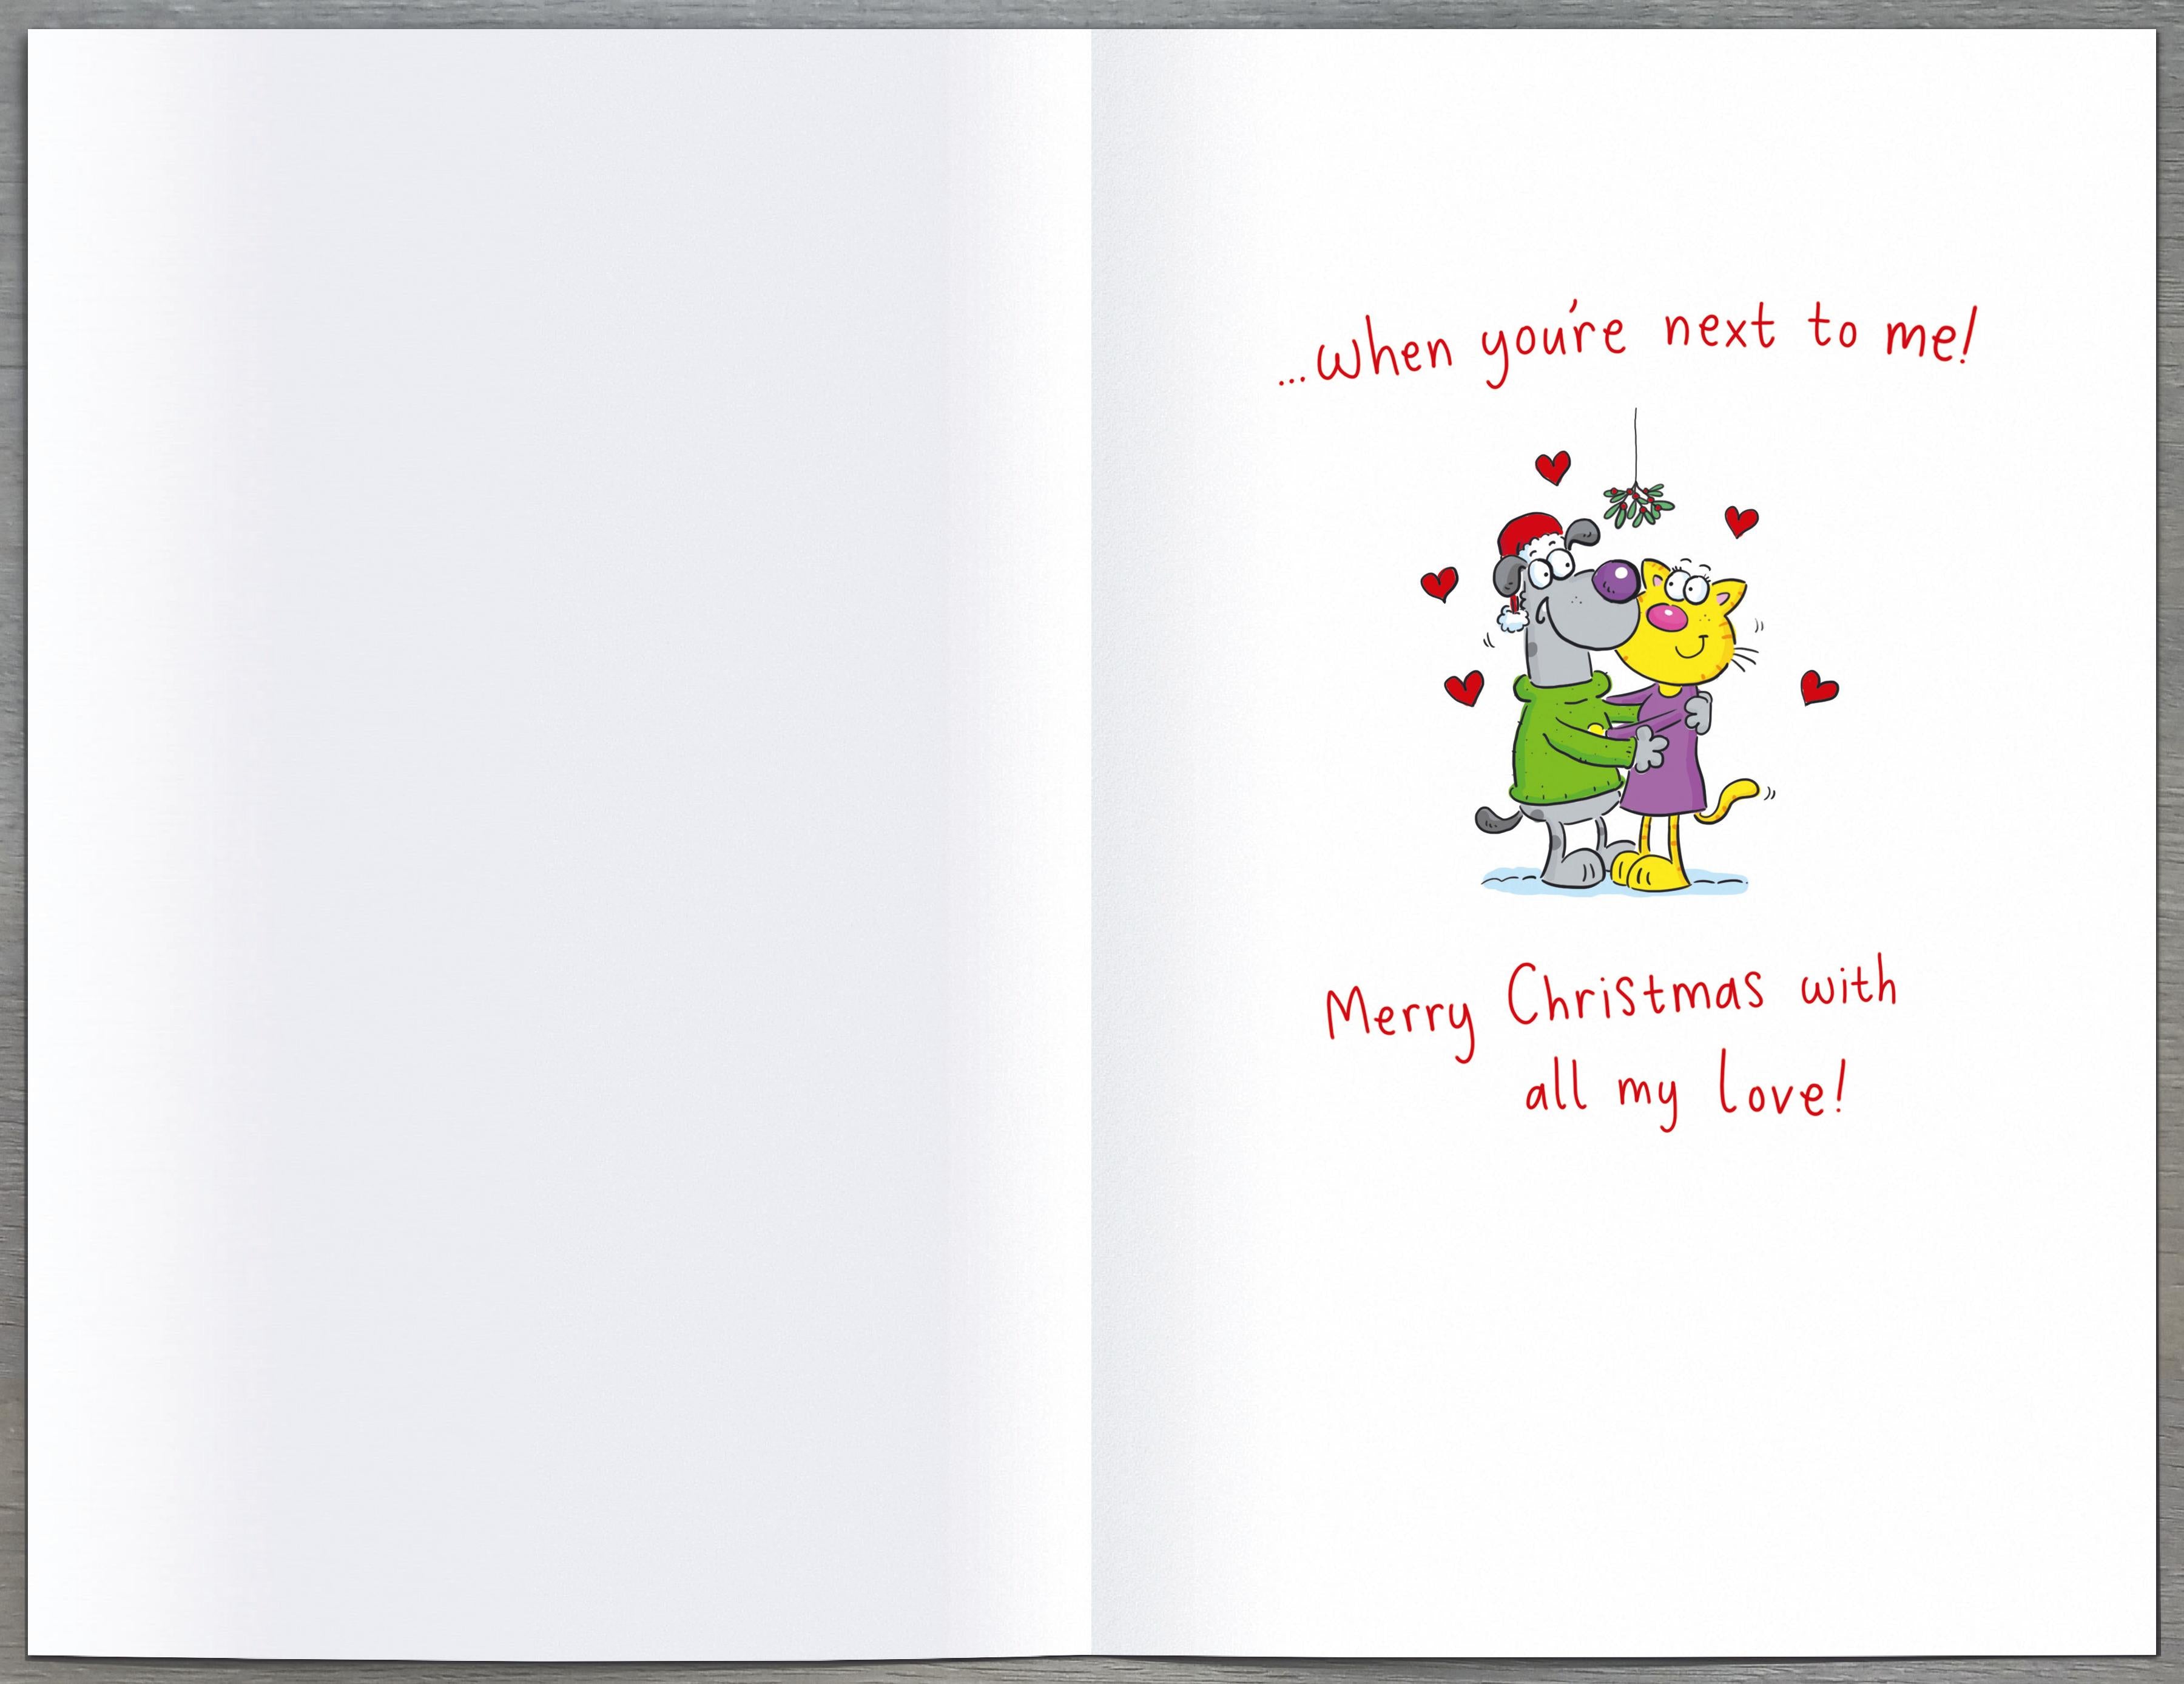 ...when you're next to me!
Merry Christmas with
all my love!